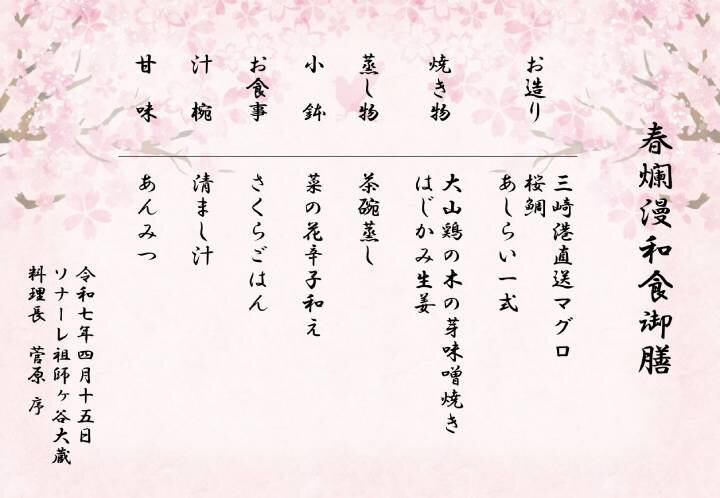 春爛漫和食御膳
お造り
三崎港直送マグロ
桜鯛
あしらい一式
焼き物
大山鶏の木の芽味噌焼き
はじかみ生姜
蒸し物
茶碗蒸し
小鉢
菜の花辛子和え
お食事
さくらごはん
汁椀
清まし汁
甘味
あんみつ
令和七年四月十五日
ソナーレ祖師ヶ谷大蔵
料理長 菅原 序